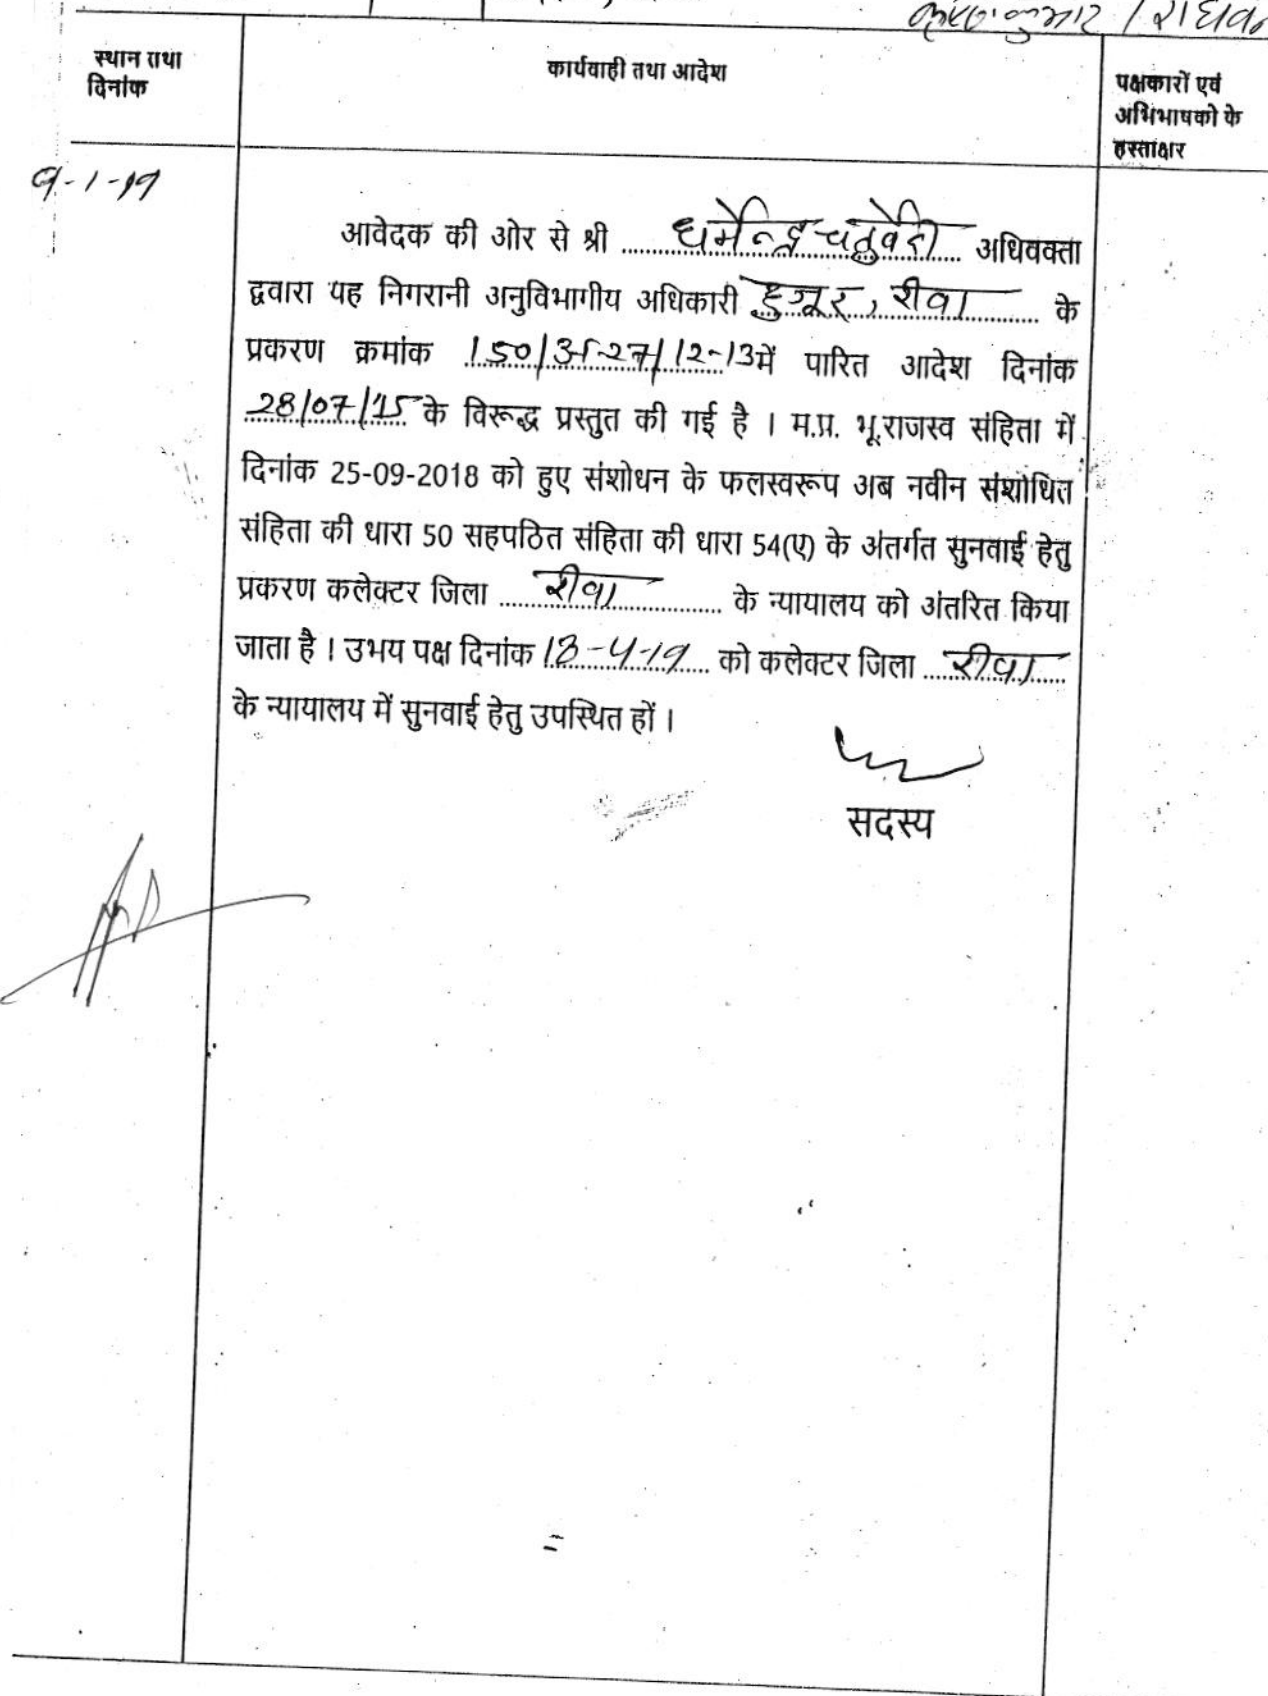 कृष्ण कुमार / राघव
स्थान तथा
दिनांक
कार्यवाही तथा आदेश
पक्षकारों एवं
अभिभाषको के
हस्ताक्षर
9-1-19
आवेदक की ओर से श्री धर्मेन्द्र चतुर्वेदी अधिवक्ता
द्ववारा यह निगरानी अनुविभागीय अधिकारी हुजूर, रीवा के
प्रकरण क्रमांक 150/अ-27/12-13 में पारित आदेश दिनांक
28/07/15 के विरूद्ध प्रस्तुत की गई है । म.प्र. भू.राजस्व संहिता में
दिनांक 25-09-2018 को हुए संशोधन के फलस्वरूप अब नवीन संशोधित
संहिता की धारा 50 सहपठित संहिता की धारा 54(ए) के अंतर्गत सुनवाई हेतु
प्रकरण कलेक्टर जिला रीवा के न्यायालय को अंतरित किया
जाता है । उभय पक्ष दिनांक 18-4-19 को कलेक्टर जिला रीवा
के न्यायालय में सुनवाई हेतु उपस्थित हों ।
सदस्य